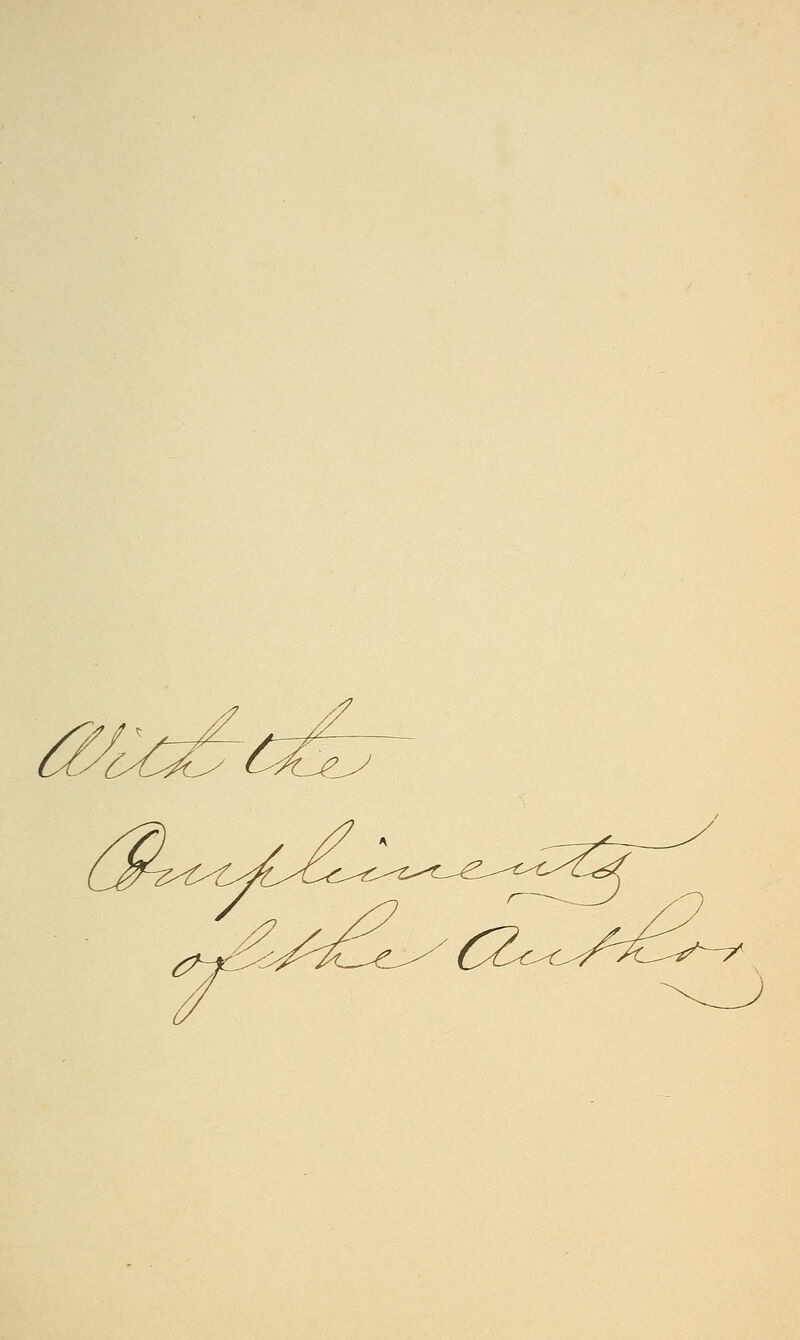 With the
Compliments
of the Author